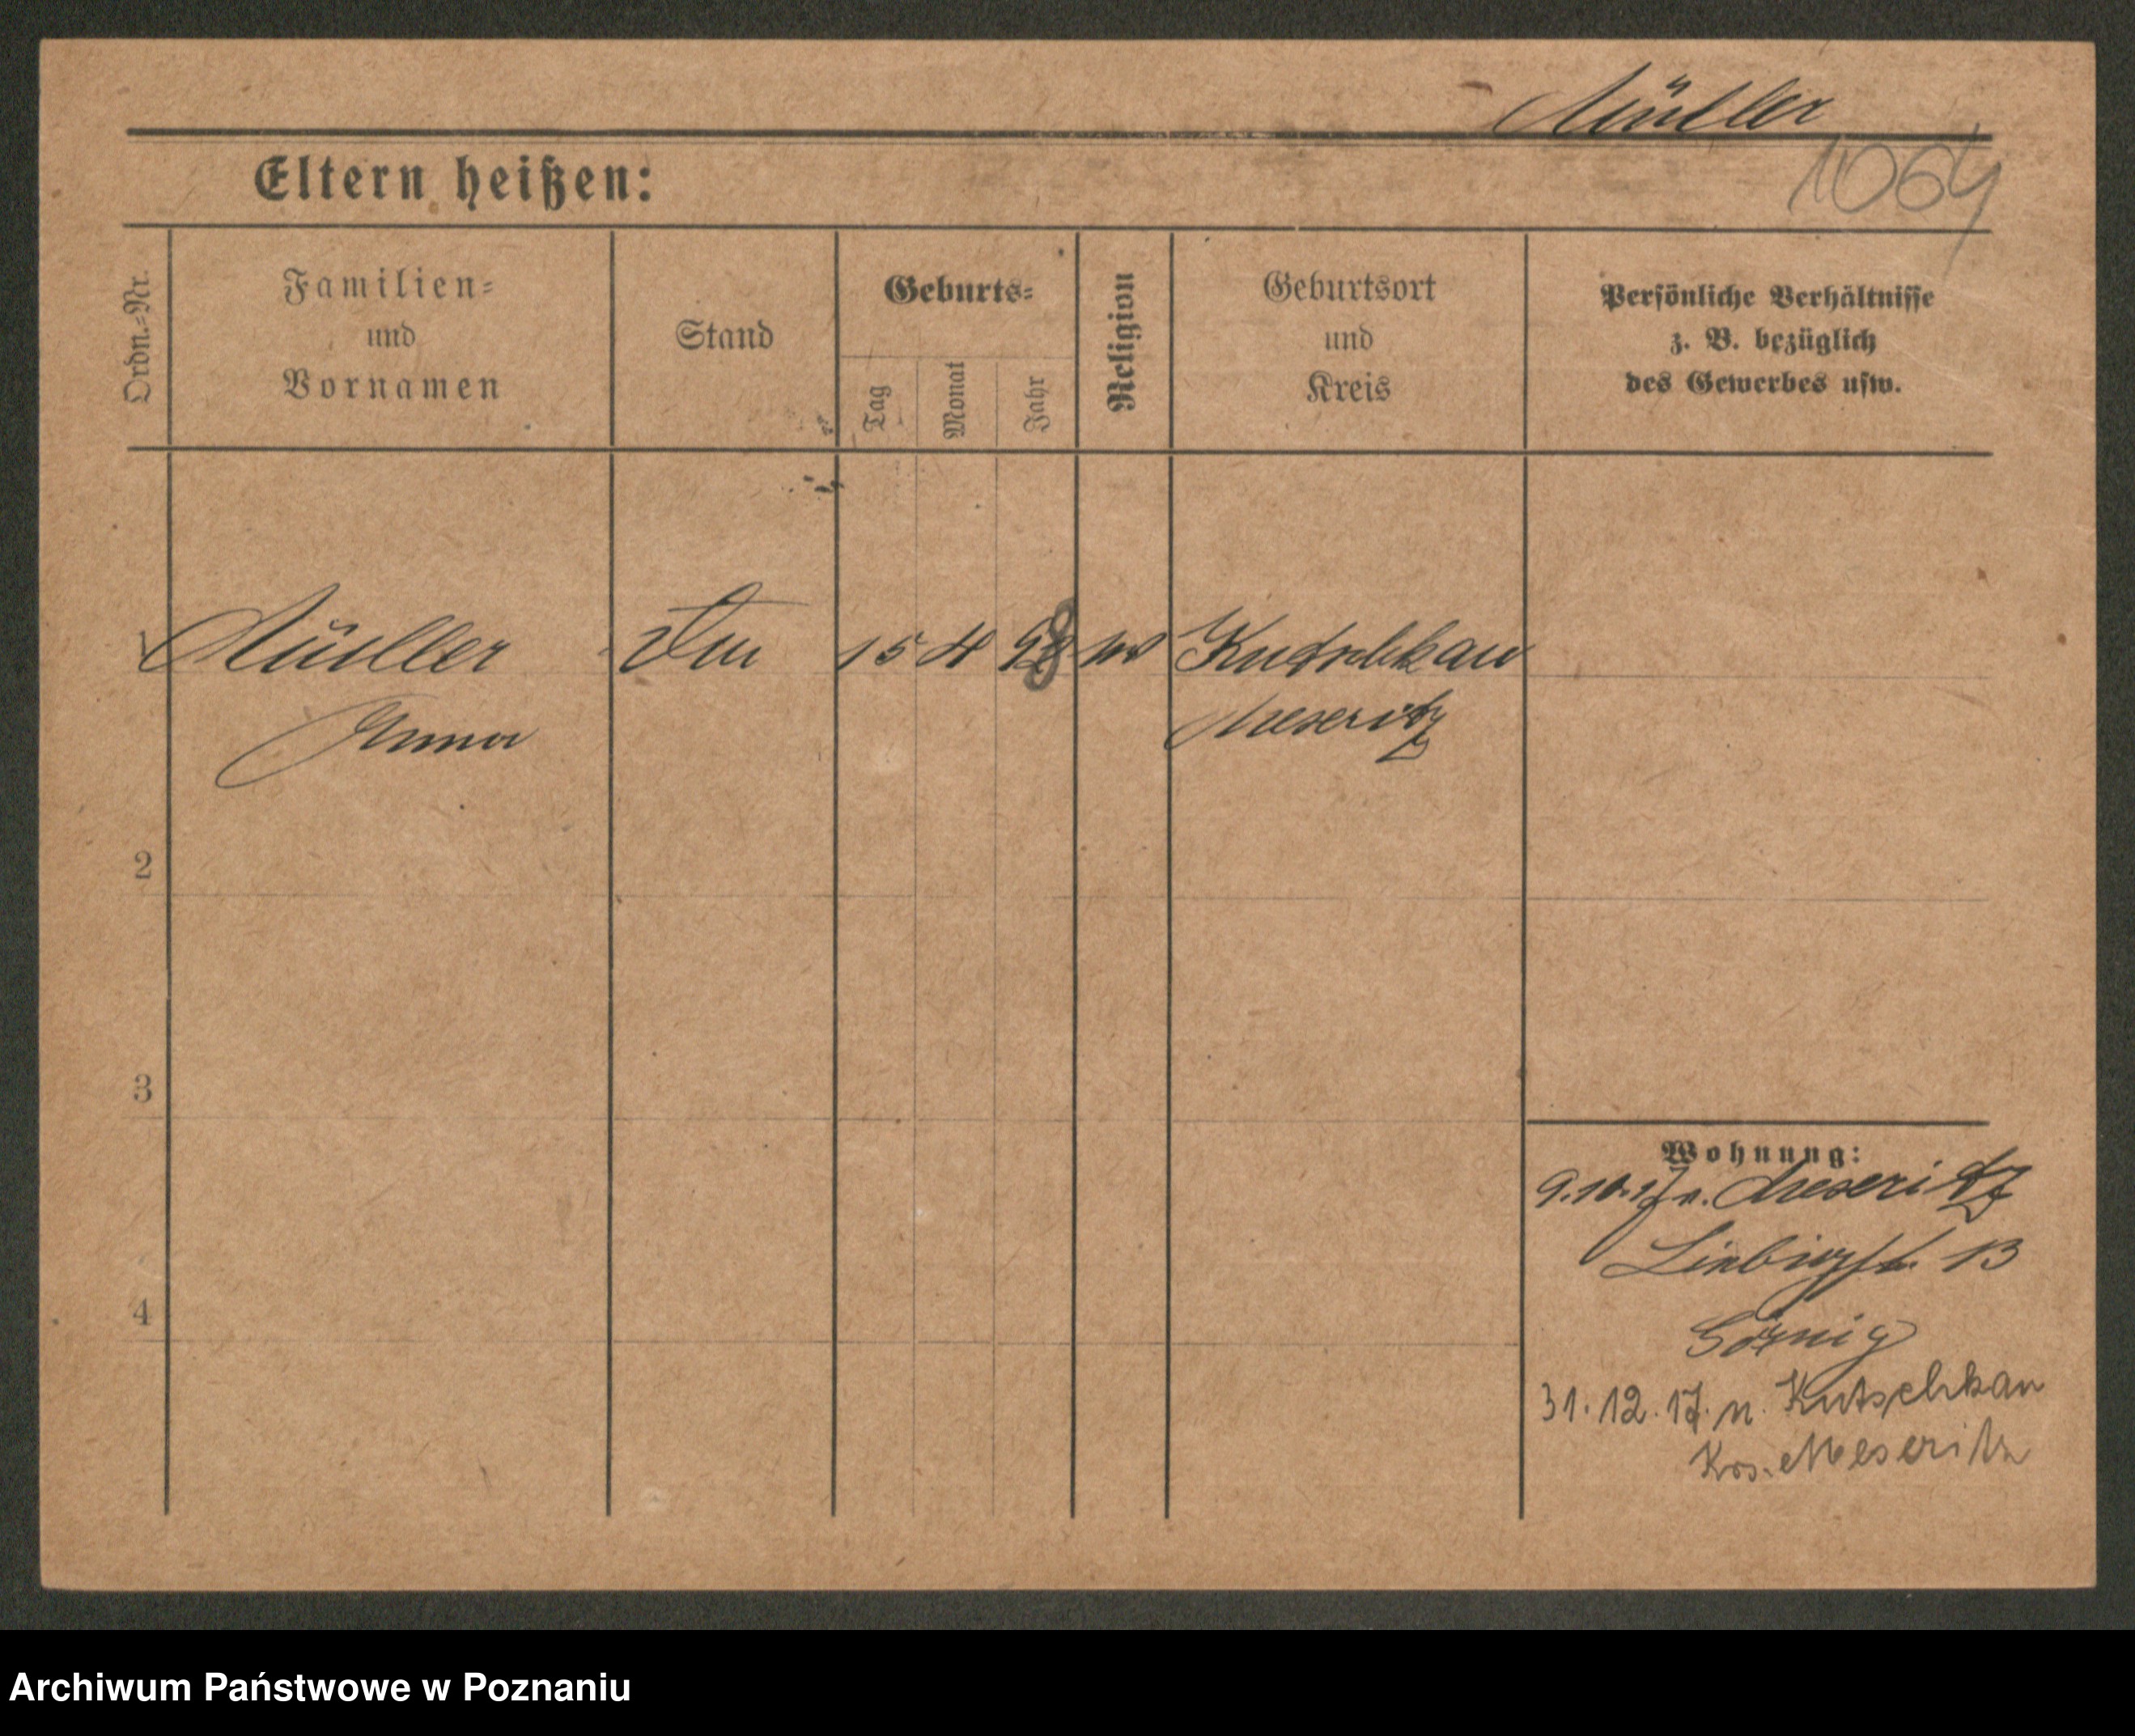 Müller
1064
Eltern heißen:
Ordn.=Nr.
Familien=
und
Vornamen
Stand
Geburts=
Tag
Monat
Jahr
Religion
Geburtsort
und
Kreis
Persönliche Verhältnisse
z. B. bezüglich
des Gewerbes usw.
Müller 15 4 98 Kutschkau
Anna Meseritz
2
3
4
Wohnung:
9.10.17 v. Meseritz
Liebigst. 13
31.12.17. n. Kutschkau
Krs. Meseritz
Archiwum Państwowe w Poznaniu